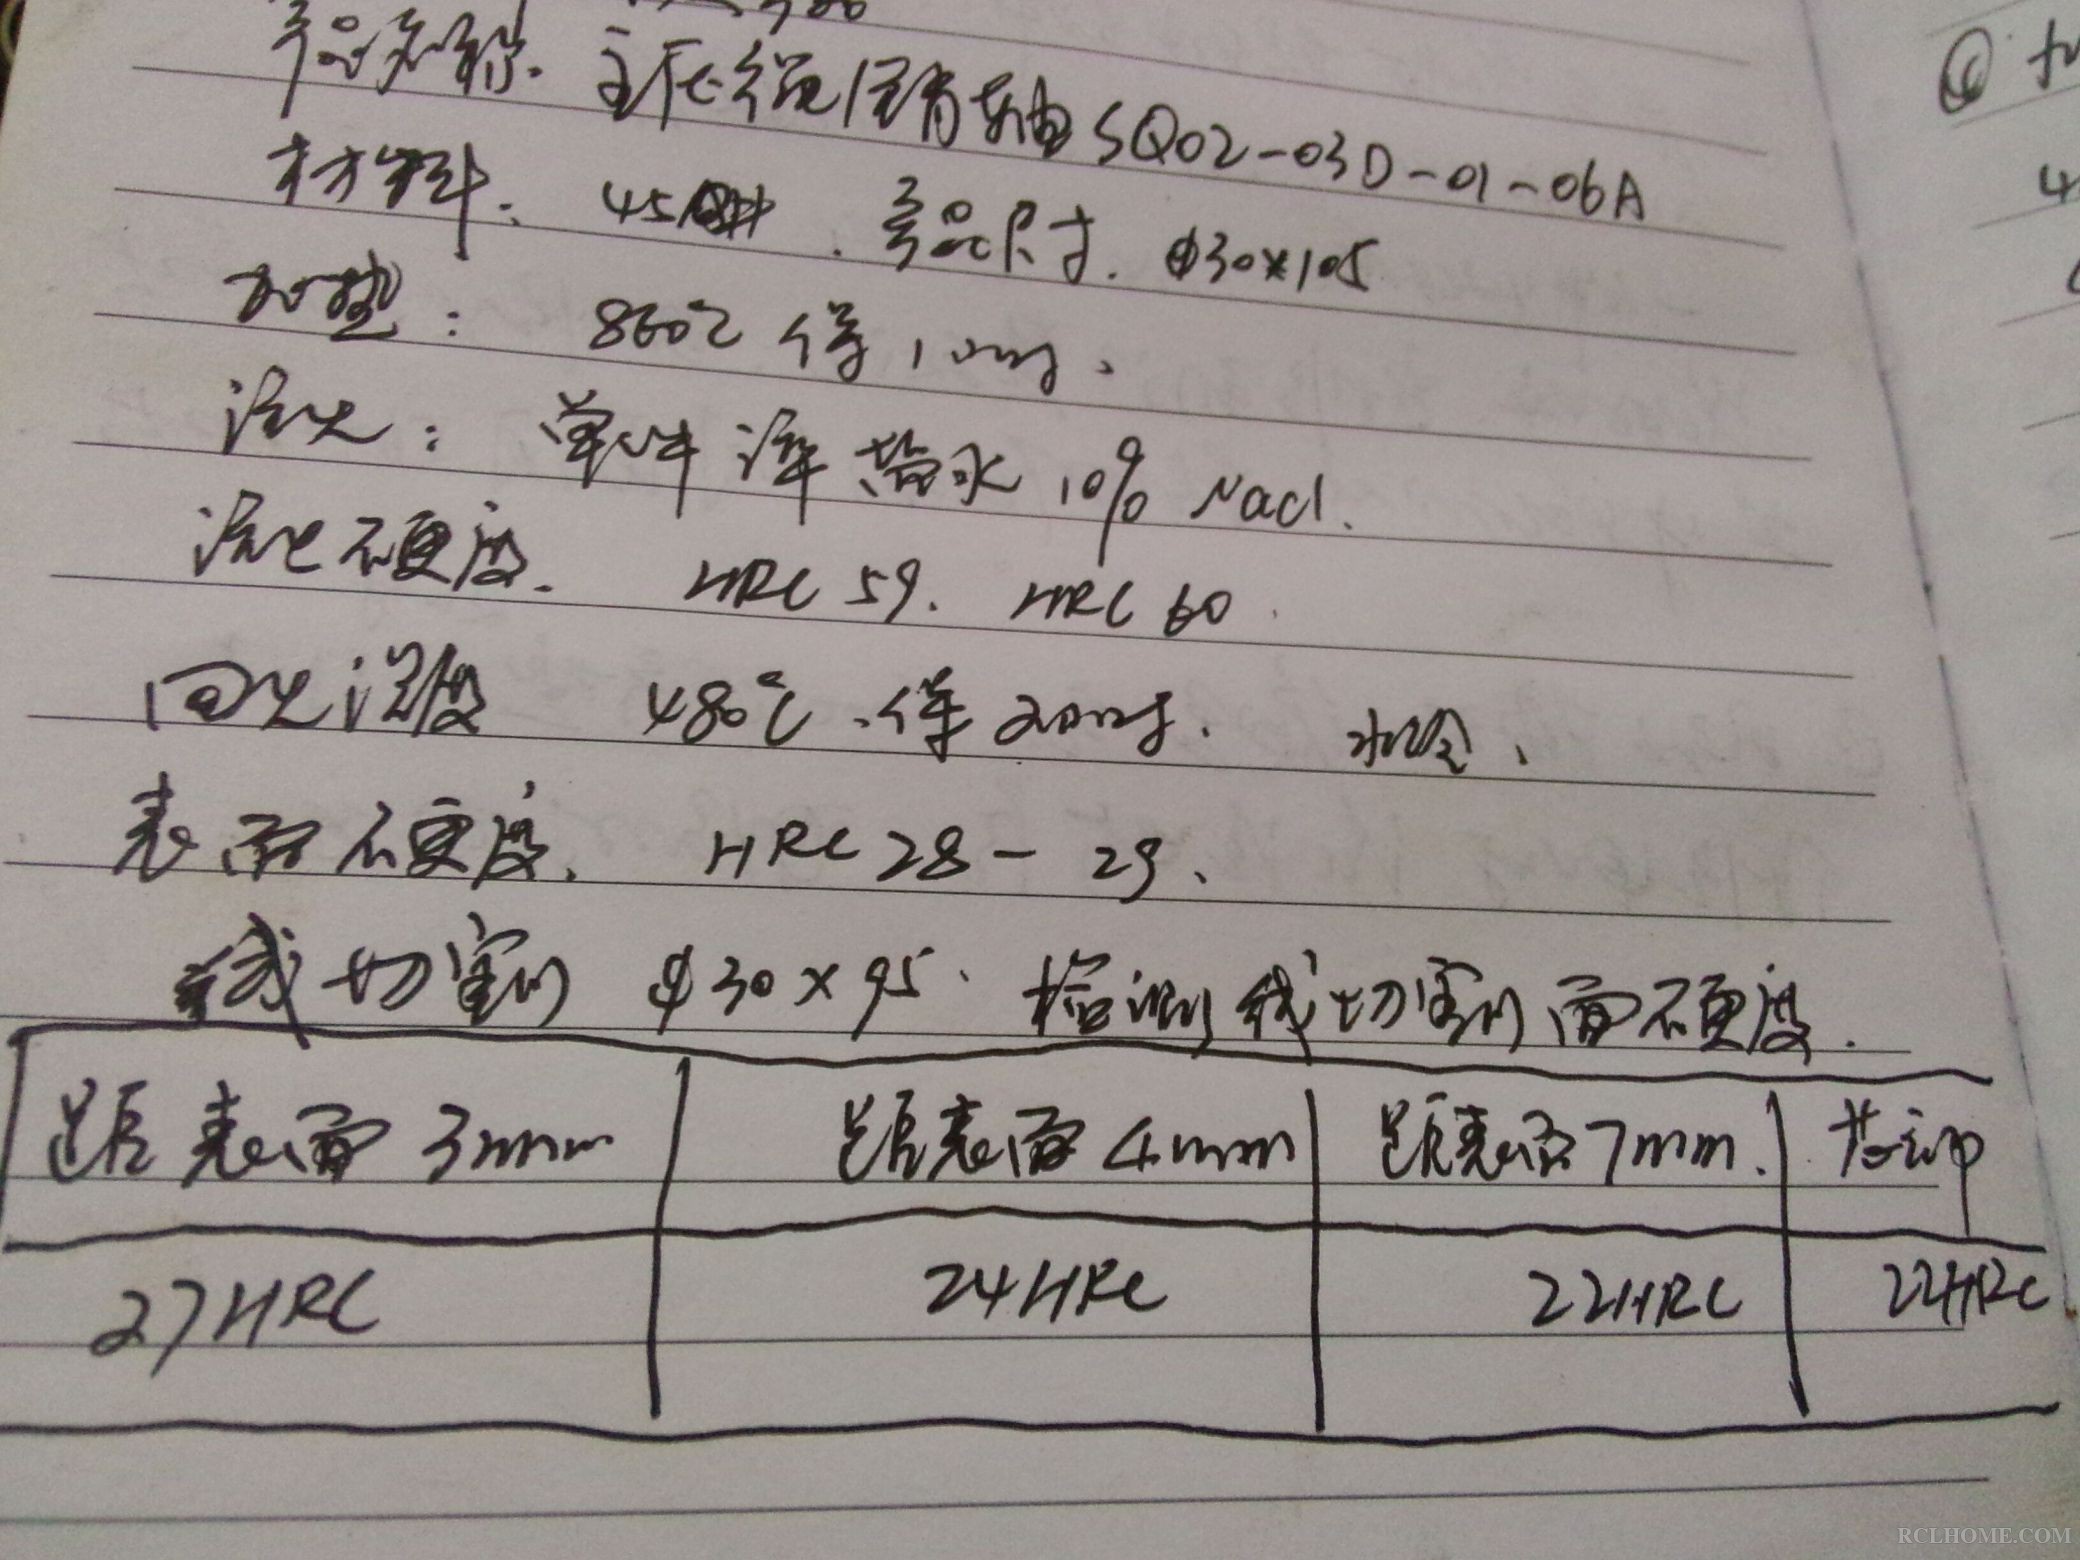 零品名称. 主压缩 销轴 SQ02-03D-01-06A
材料: 45 . 零品尺寸. Φ30*105
加热: 860℃ 保 10
淬火: 单件淬盐水 10% Nacl.
淬火硬度. HRC 59. HRC 60
回火温度 480℃. 保 20 . 水冷、
表面硬度. HRC 28 - 29、
线切割 Φ30×95. 检测线切割面硬度.
距表面 3mm 距表面 4mm 距表面 7mm. 芯部
27HRC 24HRC 22HRC 22HRC
RCLHOME.COM